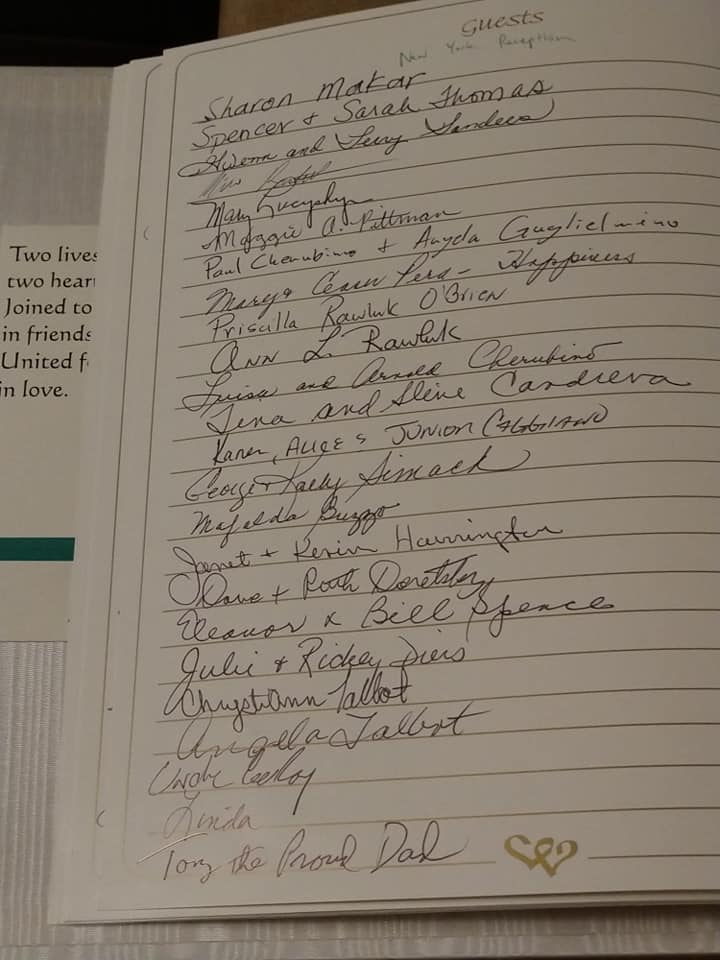 Guests
New York Reception
Sharon Makar
Spencer + Sarah Thomas
Gwenn and Terry Sanders
Mary
Maggie A. Pittman
Paul Cherubino + Guglielmino
Happiness
Priscilla Rawluk O'Brien
Ann L. Rawluk
Luisa and Arnold Cherubino
Tina and Steve Candreva
Karen, Alice & Junior Caggiano
George + Simach
Mafalda Buzzo
Janet + Kevin Harrington
Dave + Ruth
Eleanor & Bill Spence
Julie + Rickey Piers
ChrystiAnn Talbot
Angela Talbot
Uncle
Linda
Tony the Proud Dad
Two lives
two hear
Joined to
in friends
United f
in love.